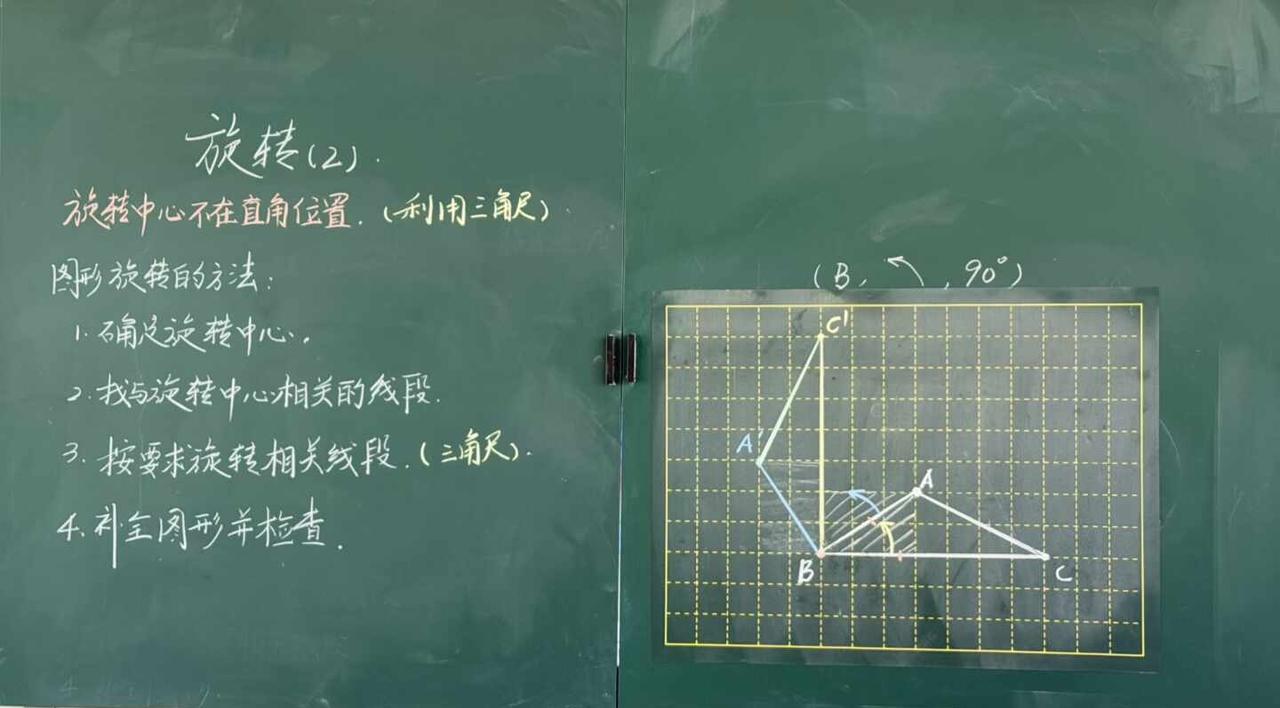 旋转(2).
旋转中心不在直角位置.(利用三角尺).
图形旋转的方法:
1.确定旋转中心.
2.找与旋转中心相关的线段.
3.按要求旋转相关线段.(三角尺).
4.补全图形并检查.
(B, ↶, 90°)
C'
A'
A
B
C